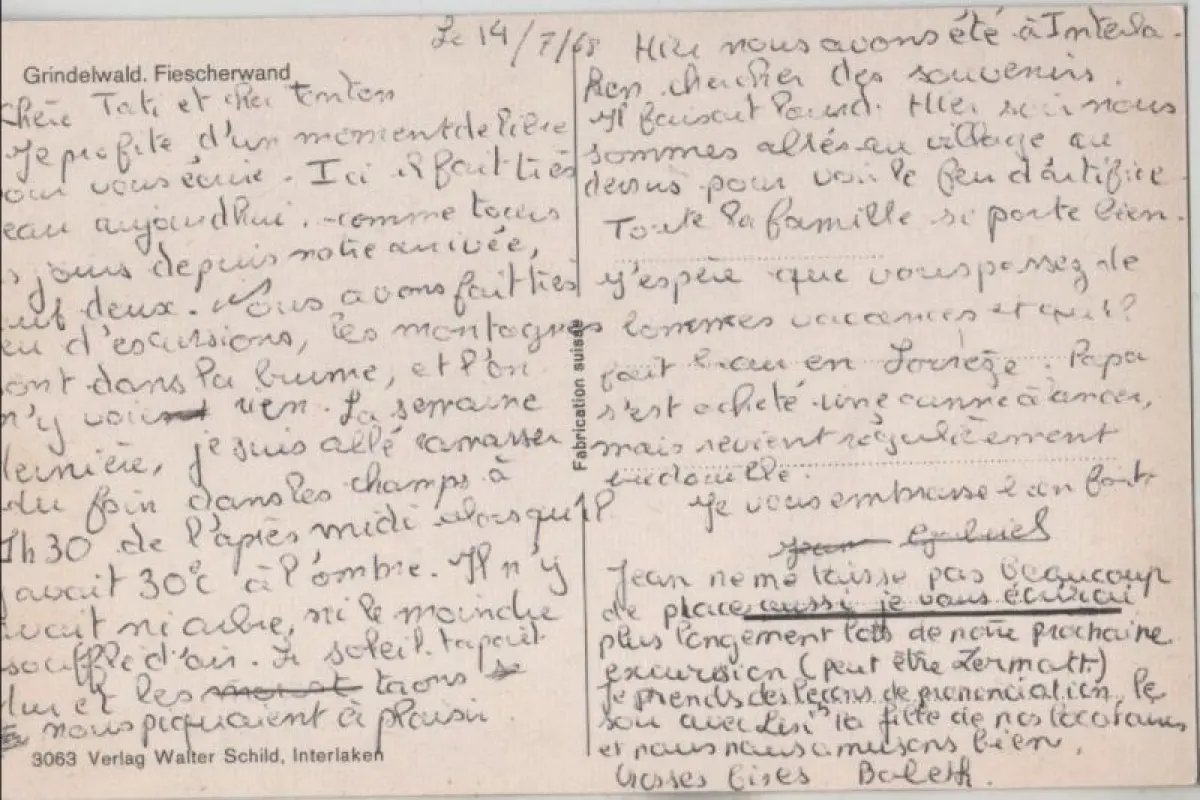 Le 14/7/68
Grindelwald. Fiescherwand
chère Tati et cher tonton
Je profite d'un moment de
pour vous écrire. Ici il fait très
eau aujourdhui. comme tous
s jours depuis notre arrivée,
auf deux. Nous avons fait très
eu d'escursions, les montagnes
ont dans la brume, et l'on
n'y voit rien. La semaine
dernière, je suis allé ramasser
du foin dans les champs à
1h30 de l'après midi alorsqu'il
y avait 30°c à l'ombre. Il n'y
avait ni arbre, ni le moindre
souffle d'air. Le soleil tapait
dur et les taons
nous piquaient à plaisir.
3063 Verlag Walter Schild, Interlaken
Fabrication suisse
Hier nous avons été à Interla-
ken chercher des souvenirs.
Il faisait lourd. Hier soir nous
sommes allés au village au
dessus pour voir le feu d'artifice
Toute la famille se porte bien.
J'espère que vous passez de
bonnes vacances et qu'il
fait beau en Corrèze. Papa
s'est acheté une canne à lancer,
mais revient régulièrement
bredouille.
Je vous embrasse bien fort
Jean Gabriel
Jean ne me laisse pas beaucoup
de place aussi je vous écrirai
plus longement lors de notre prochaine
excursion (peut être Zermatt)
Je prends des leçons de prononciation le
soir avec Lisi la fille de nos locataires
et nous nous amusons bien.
Grosses bises Babeth.